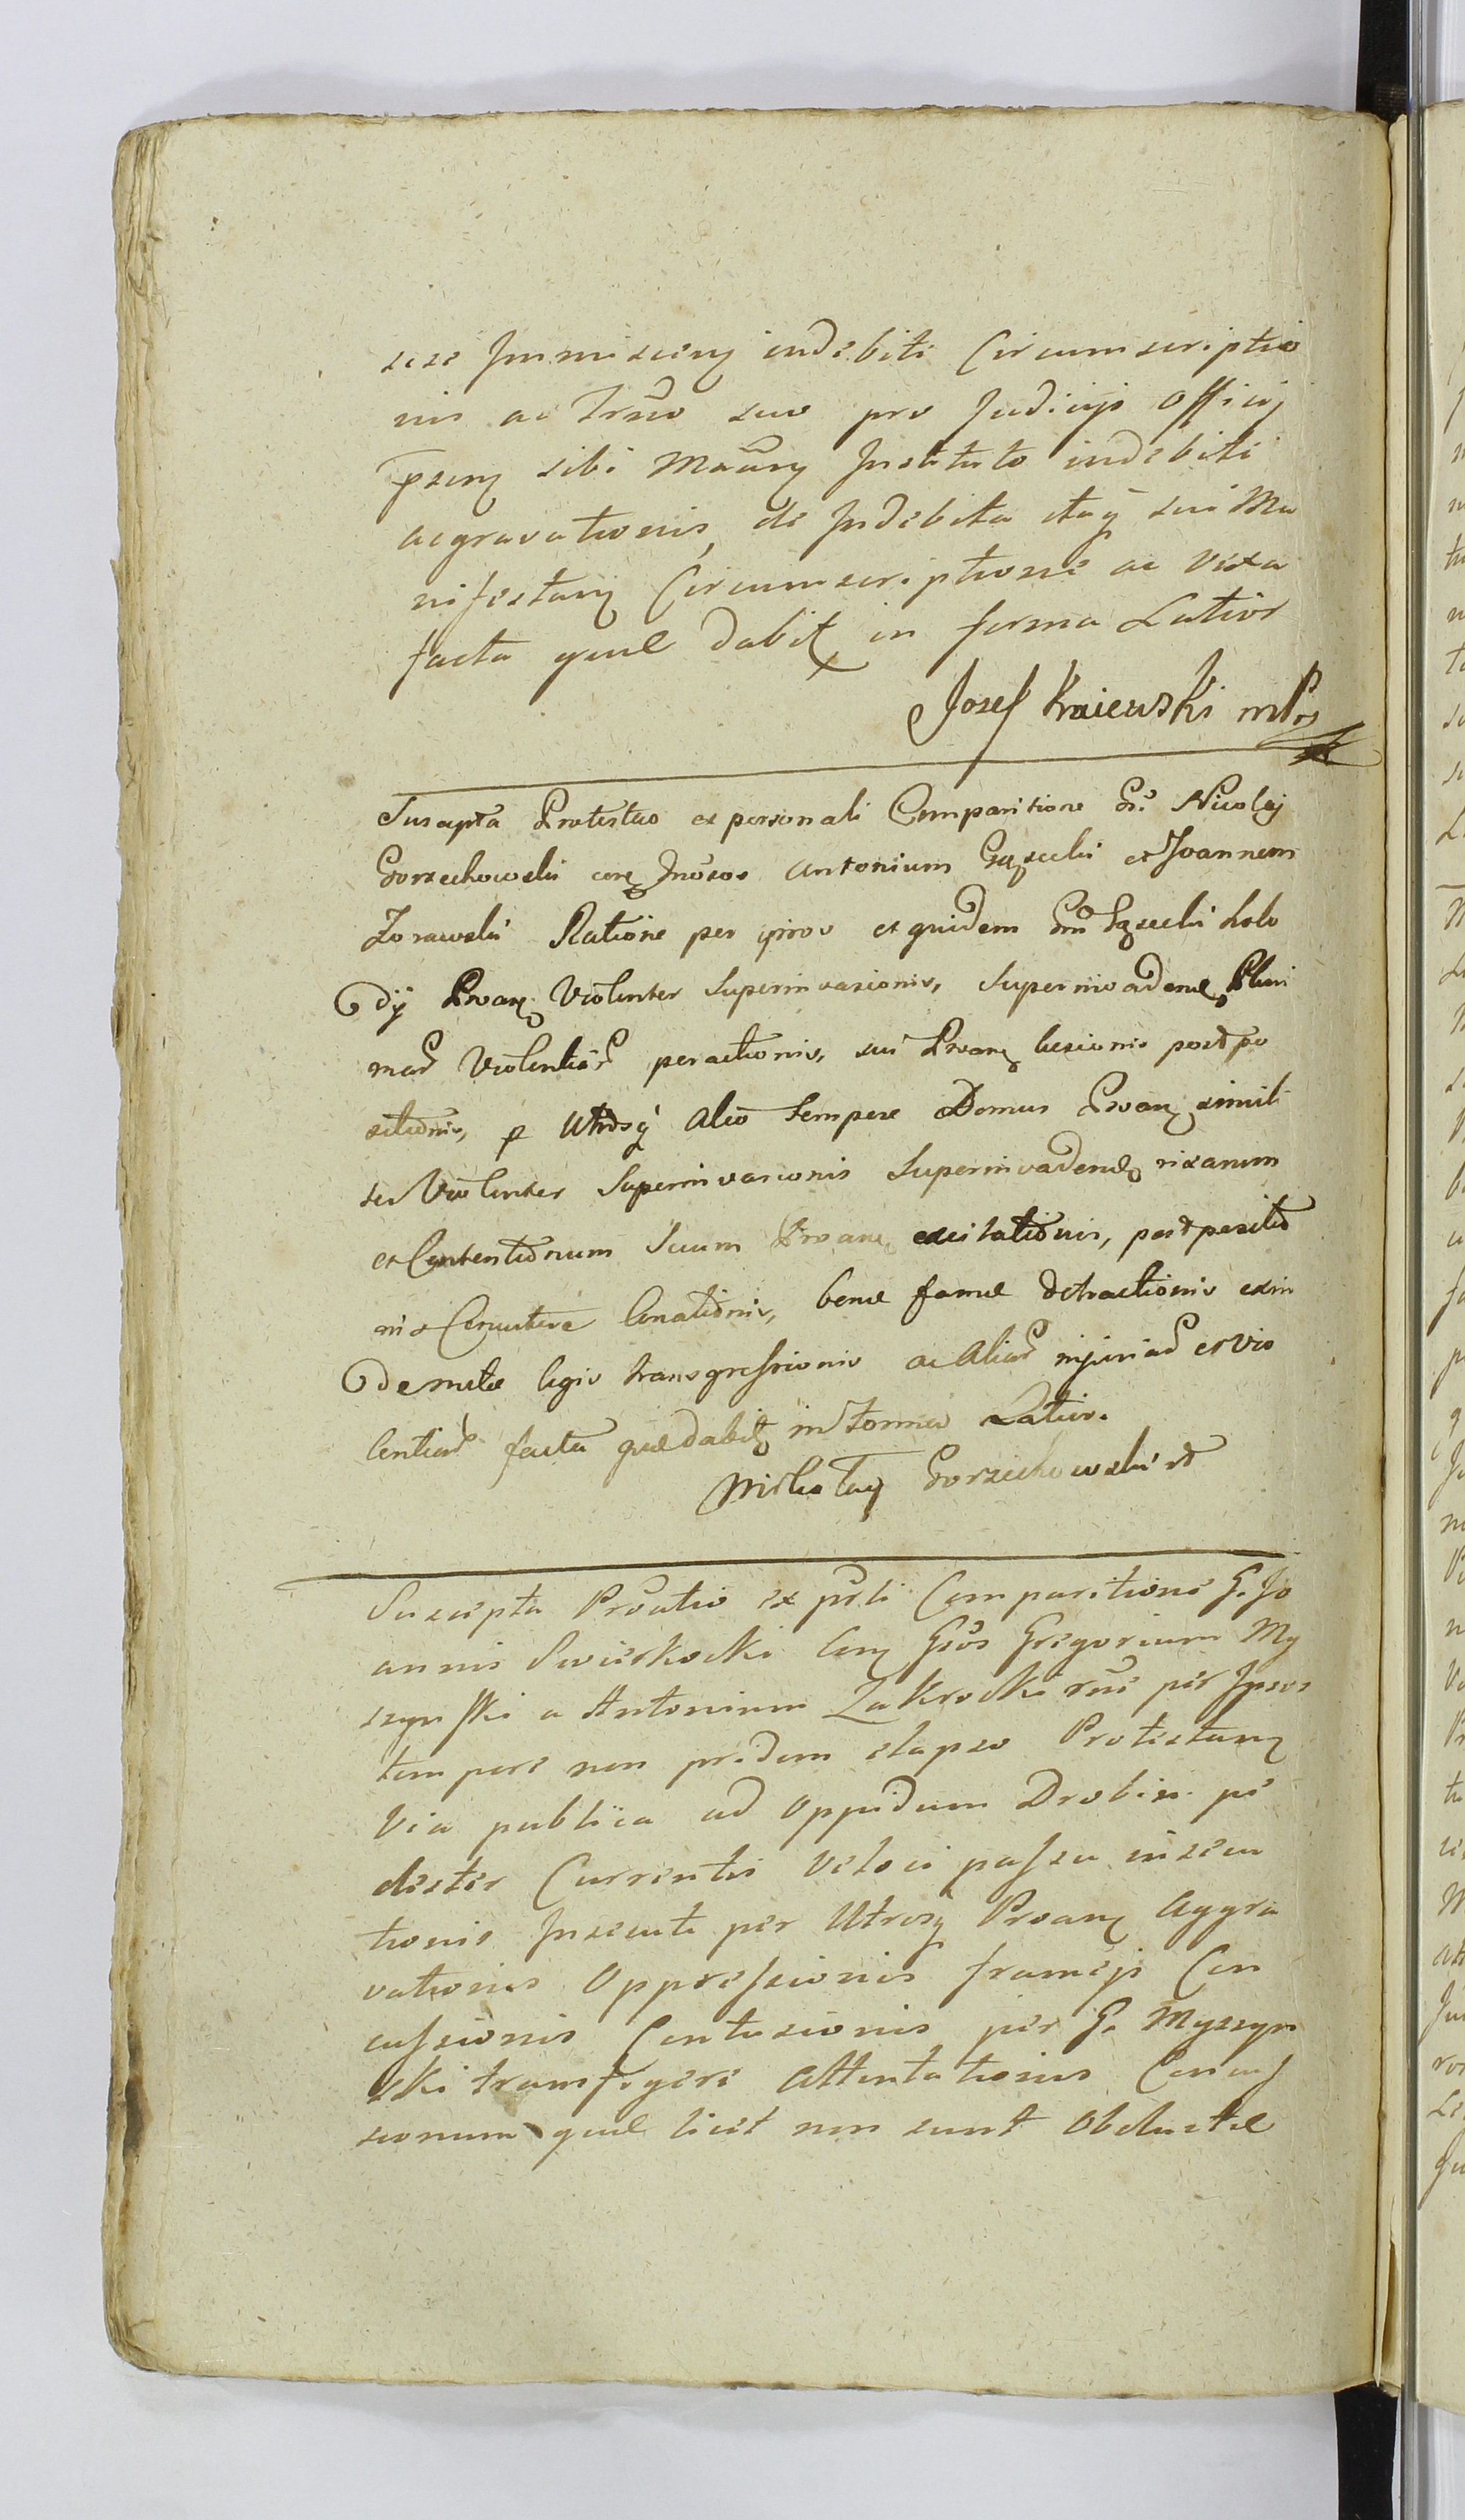 sese Immiscen indebiti Circumscriptio
nis ac Trno suo pro Judicijs Officij
psen sibi Manen Instituto indebiti
acgravationis, de Indebita itaq sui Ma
nifestan Circumscriptione ac Vexa
facta quae dabit in forma Latior
Josef Kraiewski mp
Suscepta Protestao ex personali Comparitione Gsi Nicolaj
Gorzechowski cerę Gnosos Antonium Gąsecki et Joannem
Zorawski Ratione per ipsos et quidem Gsm Gąsecki holo
dij Proan Violenter Superinvasionis, Superinvadendo Pluri
mar Violentiar peractionis, sui Proan laesionis postpo
sitionis, p Utrosq alio tempore Domus Proan simili
ter Violenter Superinvasionis Superinvadendo rixarum
et Contentionum Suum Proane excitationis, postpositio
nis Conationis, bonae famae detractionis exin
de mutae legis transgressionis ac Aliar injuriar et Vio
lentiar facta quae dabit in Forma Latior.
Mikołay Gorzechowski
Suscepta Proatio ex prli Comparitione G. Jo
annis Swierkocki Con Gsos Gregorium My
szynski a Antonium Zakrocki rne per Ipsos
tempore non pridem elapso Protestan
Via publica ad Oppidum Drobin pe
dester Currentis veloci passu insecu
tionis Insecuti per Utrosq Proan Aggra
vationis Oppressionis frameis Con
cussionis Contusionis per G. Myszyn
ski transfigere Attentationis Concus
sionum quae licet non sunt Obductae